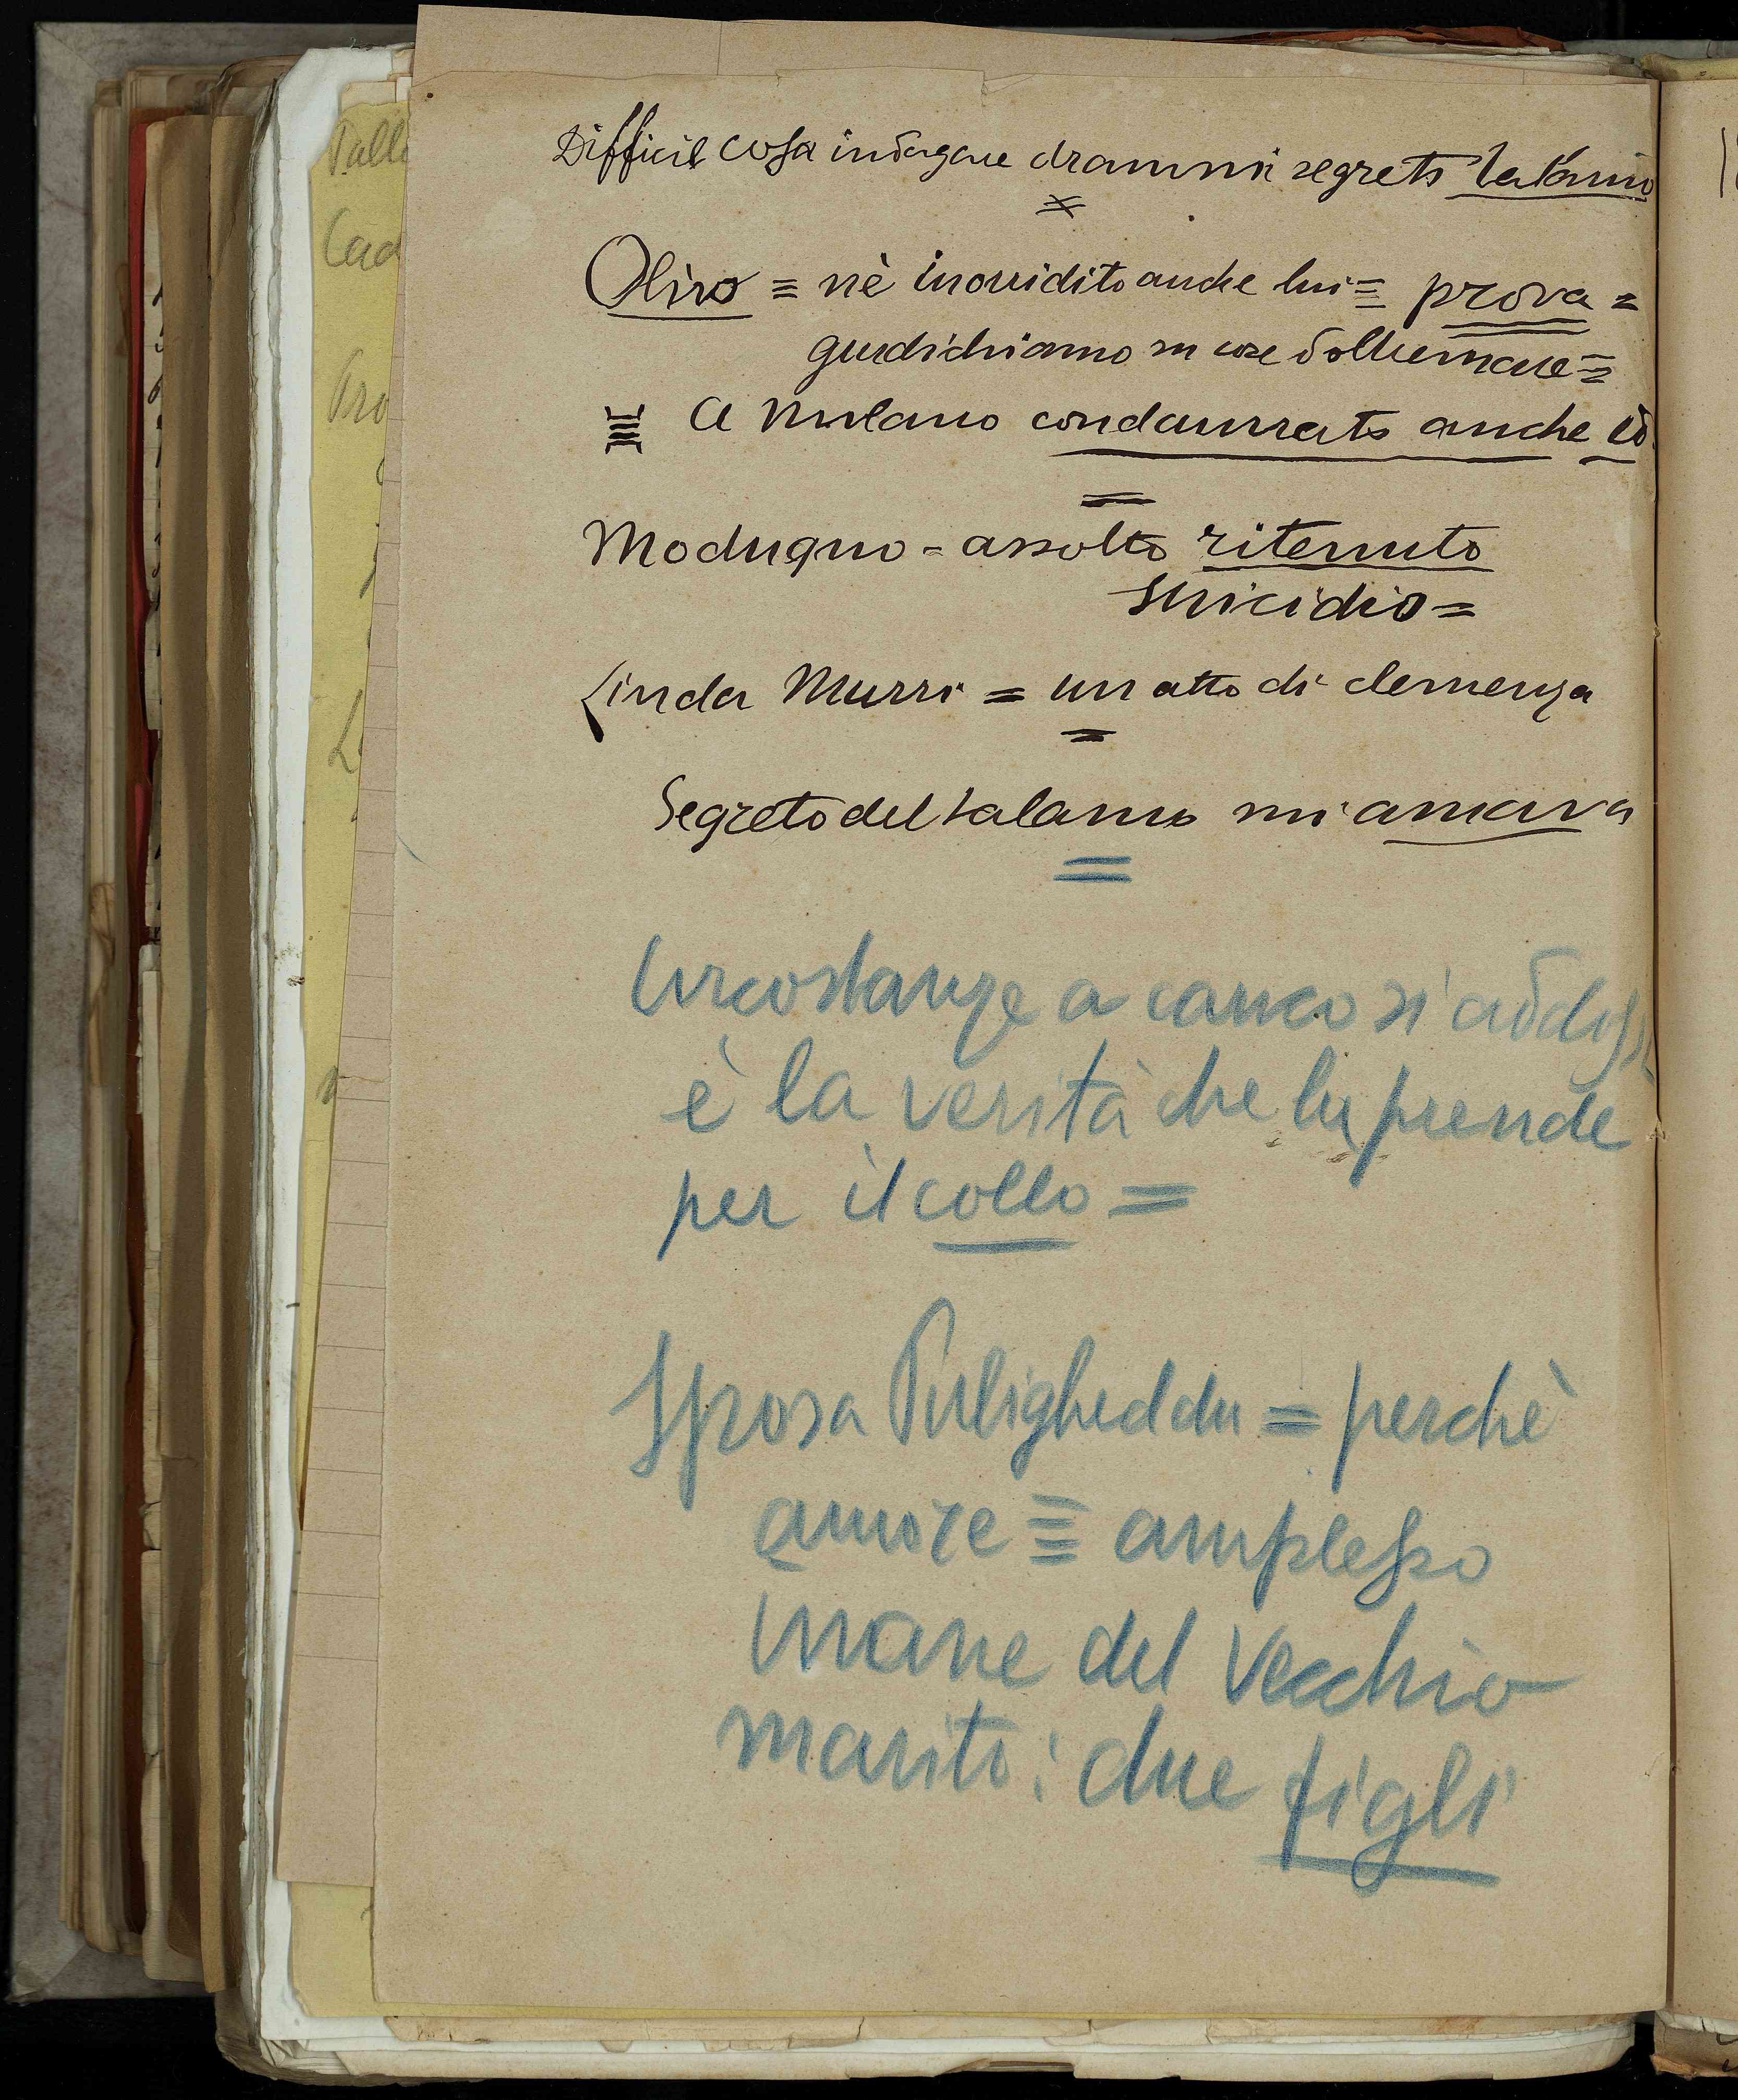 Difficil cosa indagare drammi segreto talamo
Olivo = n'è inorridito anche lui = prova =
giudichiamo su cose d'oltremare =
A Milano condannato anche
Modugno = assolto ritenuto
suicidio =
Linda Murri = un atto di clemenza
Segreto del talamo mi amava
Circostanze a carico si
è la verità che lu prende
per il collo =
Sposa Puligheddu = perchè
amore = amplesso
inane del vecchio
marito: due figli
Cad
Pro